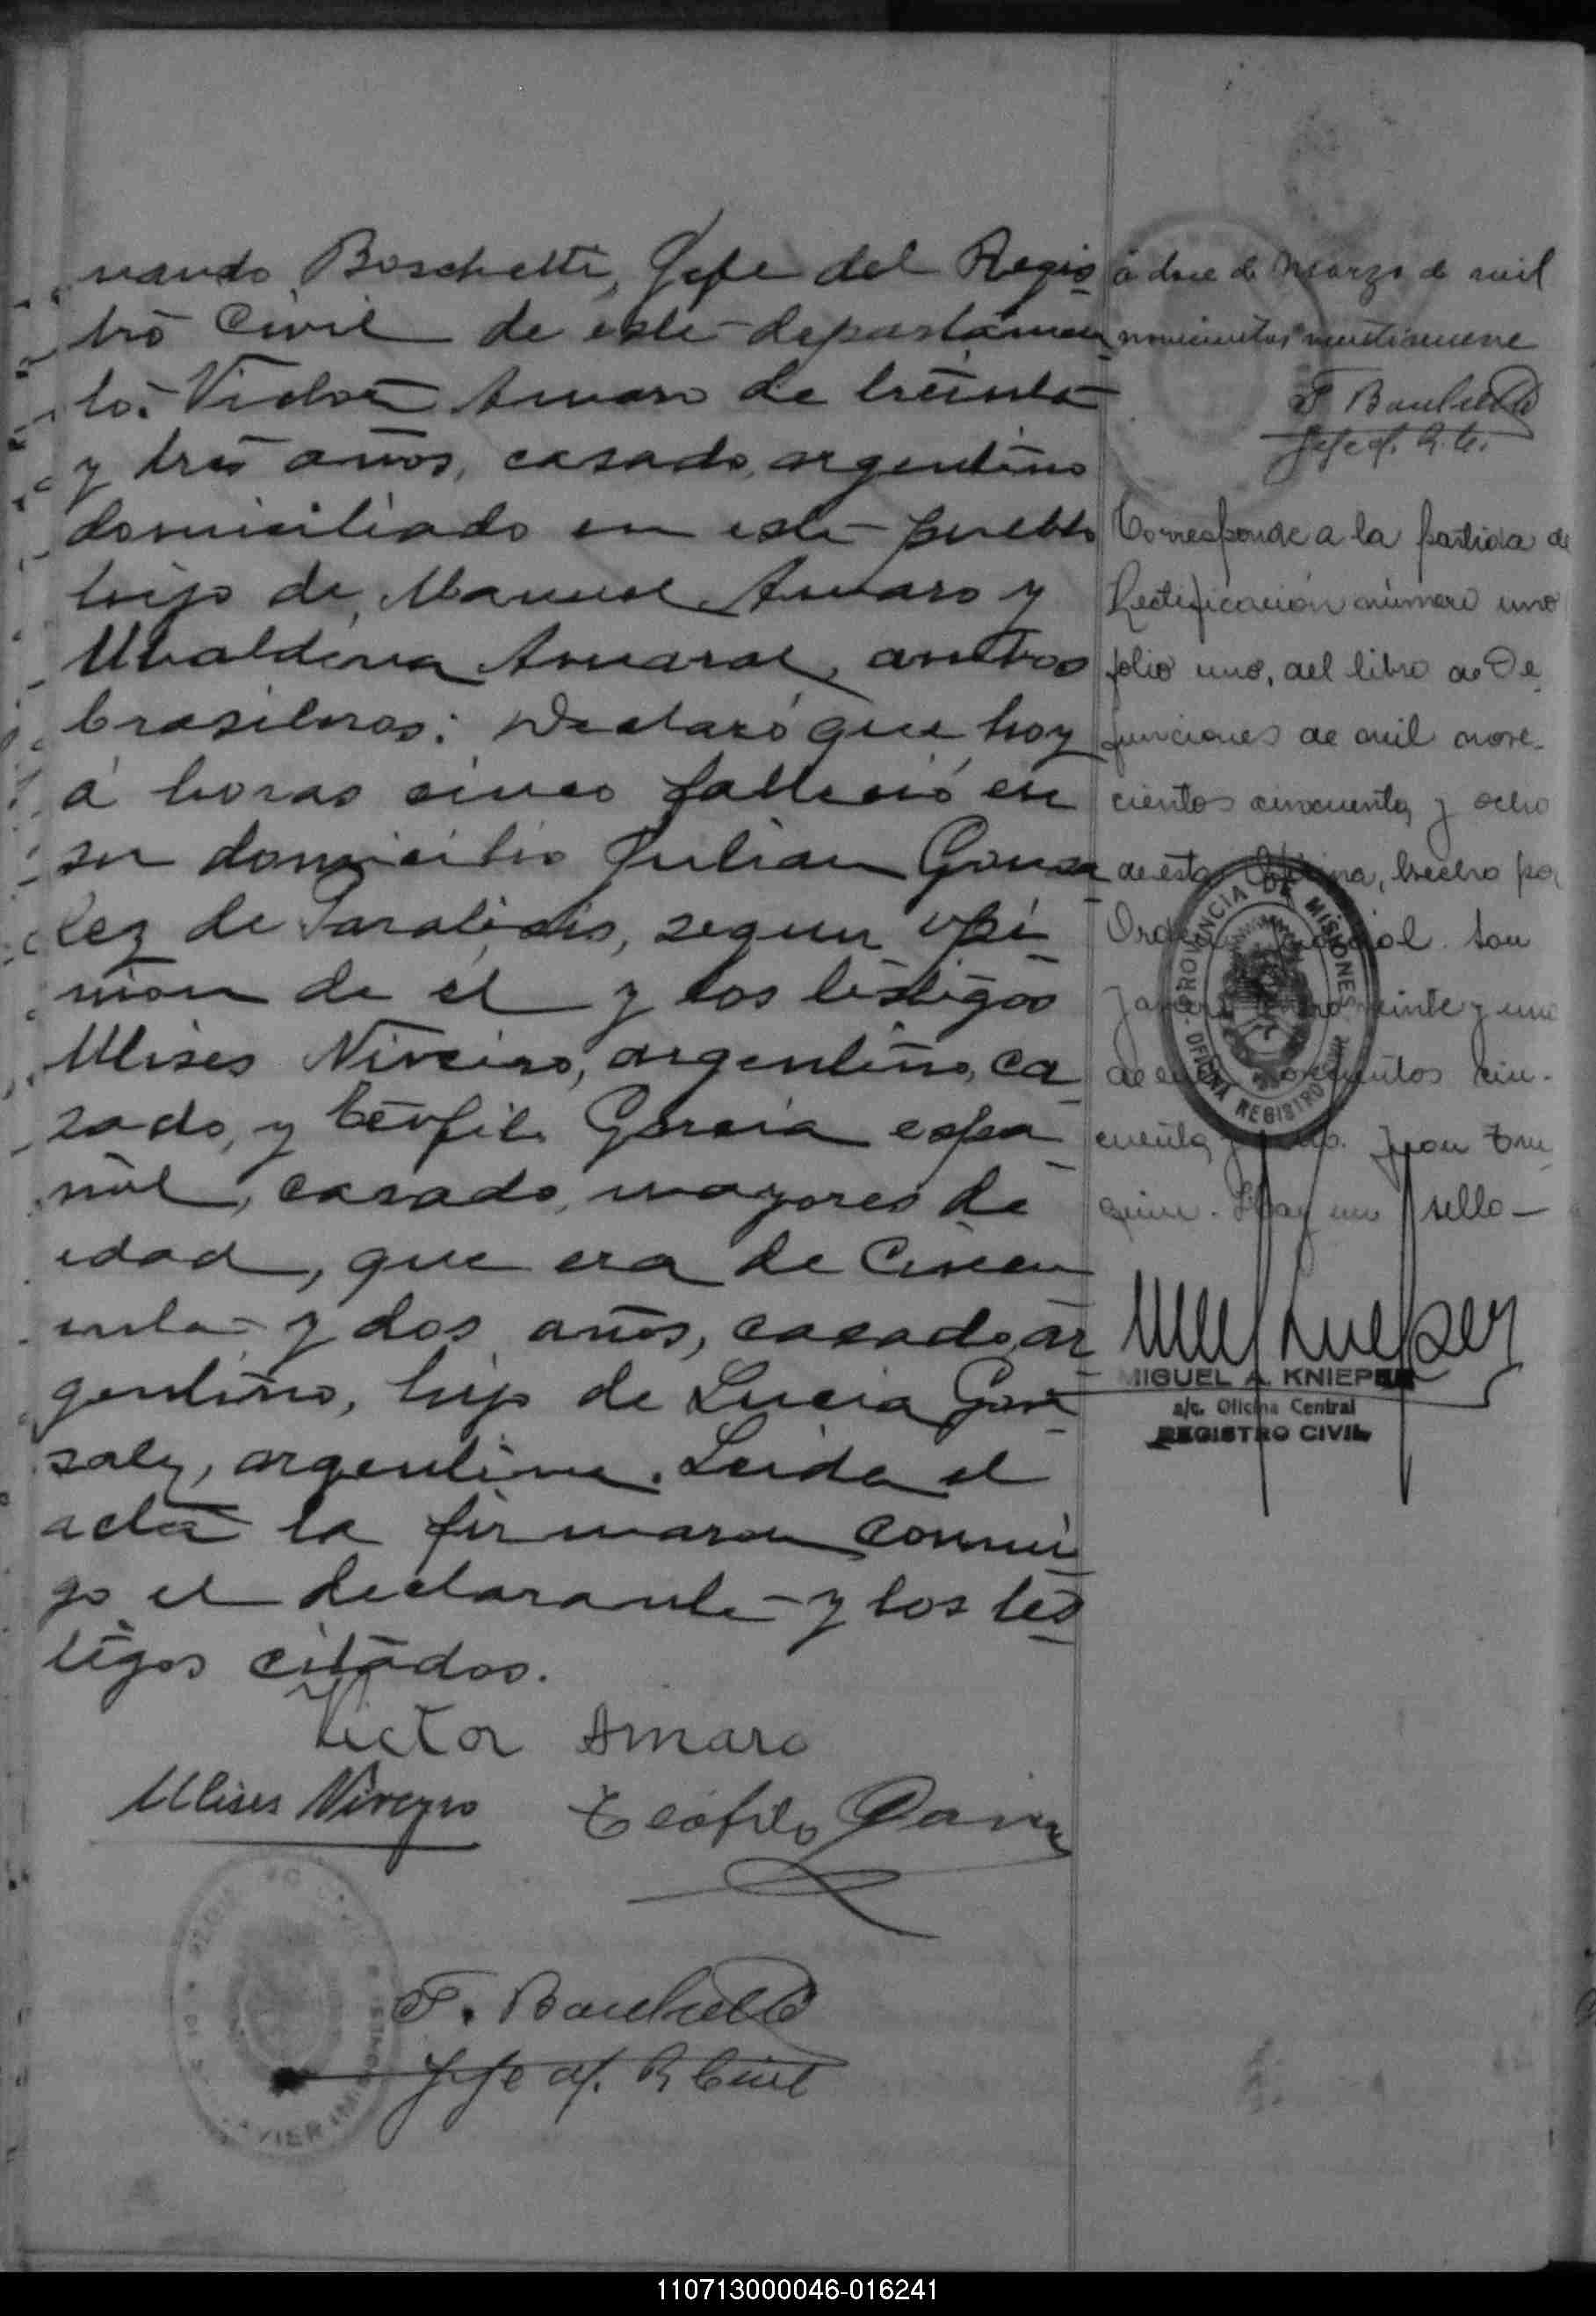 nando Boschetti, Jefe del Regis
tro Civil de este departamen
to: Victor Amaro de treinta
y tres años, casado, argentino
domiciliado en este pueblo
hijo de Manuel Amaro y
Ubaldina Amaral, ambos
brasileros: Declaró que hoy
á horas cinco falleció en
su domicilio Julian Gonza
lez de Paralisis, segun opi
nion de él y los testigos
Ulises Niveiro, argentino, ca
sado, y Teófilo Garcia espa
ñol, casado, mayores de
edad, que era de Cincu
enta y dos años, casado, ar
gentino, hijo de Lucia Gon
zalez, argentina. Leida el
acta la firmaron conmi
go el declarante y los tes
tigos citados.
Victor Amaro
Ulises Niveyro Teófilo Garcia
F. Boschetti
Jefe of. R. Civil
á doce de Marzo de mil
novecientos veintinueve
F. Boschetti
Jefe of. R. C.
Corresponde a la partida de
Rectificación número uno
folio uno, del libro de De
funciones de mil nove-
cientos cincuenta y ocho
de esta Oficina, hecho por
Orden Judicial. San
Javier, Enero veinte y uno
de novecientos cin-
cuenta y Juan
Hay un sello-
PROVINCIA DE MISIONES
OFICINA REGISTRO CIVIL
MIGUEL A. KNIEPER
a/c. Oficina Central
REGISTRO CIVIL
110713000046-016241